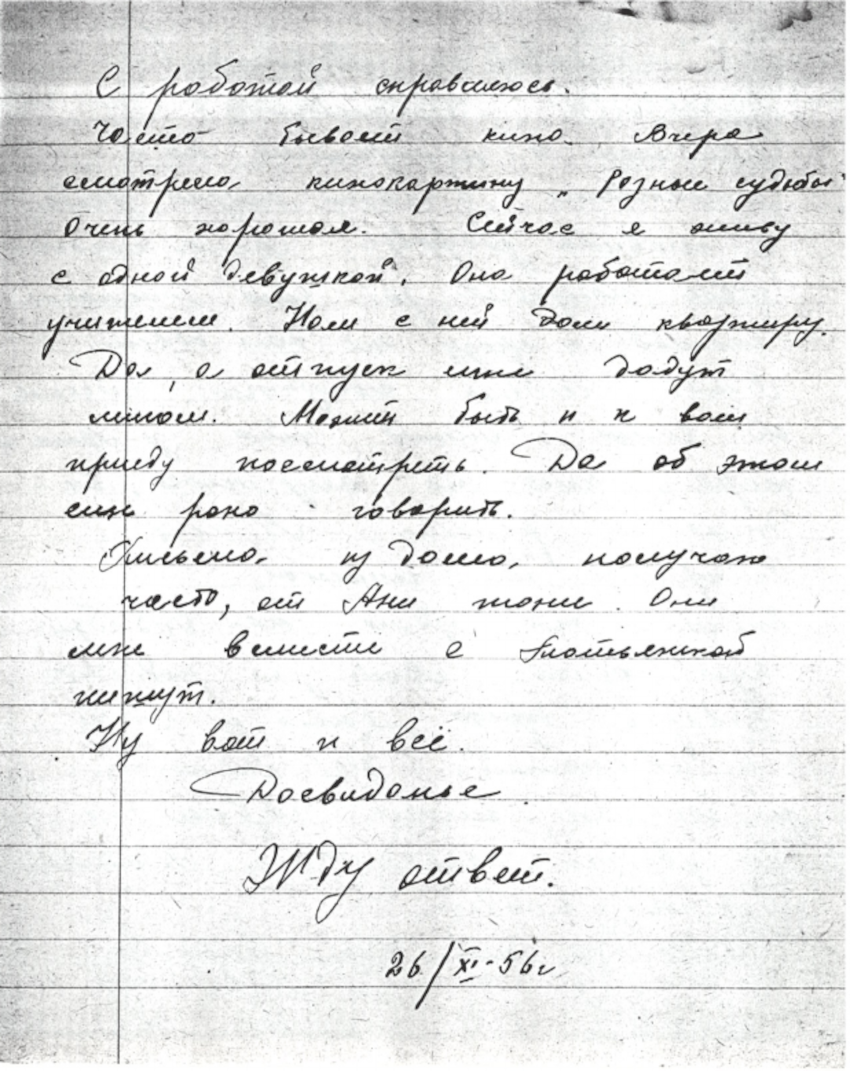 С работой справляюсь.
Часто бывает кино. Вчера
смотрела кинокартину „Разные судьбы"
Очень хорошая. Сейчас я живу
с одной девушкой. Она работает
учителем. Нам с ней дали квартиру.
Да, а отпуск мне дадут
летом. Может быть и к вам
приеду посмотреть. Да об этом
ещё рано говорить.
Письма, из дома, получаю
часто, от Ани тоже. Они
мне вместе с
пишут.
Ну вот и всё.
Досвиданье
Жду ответ.
26/XI-56г